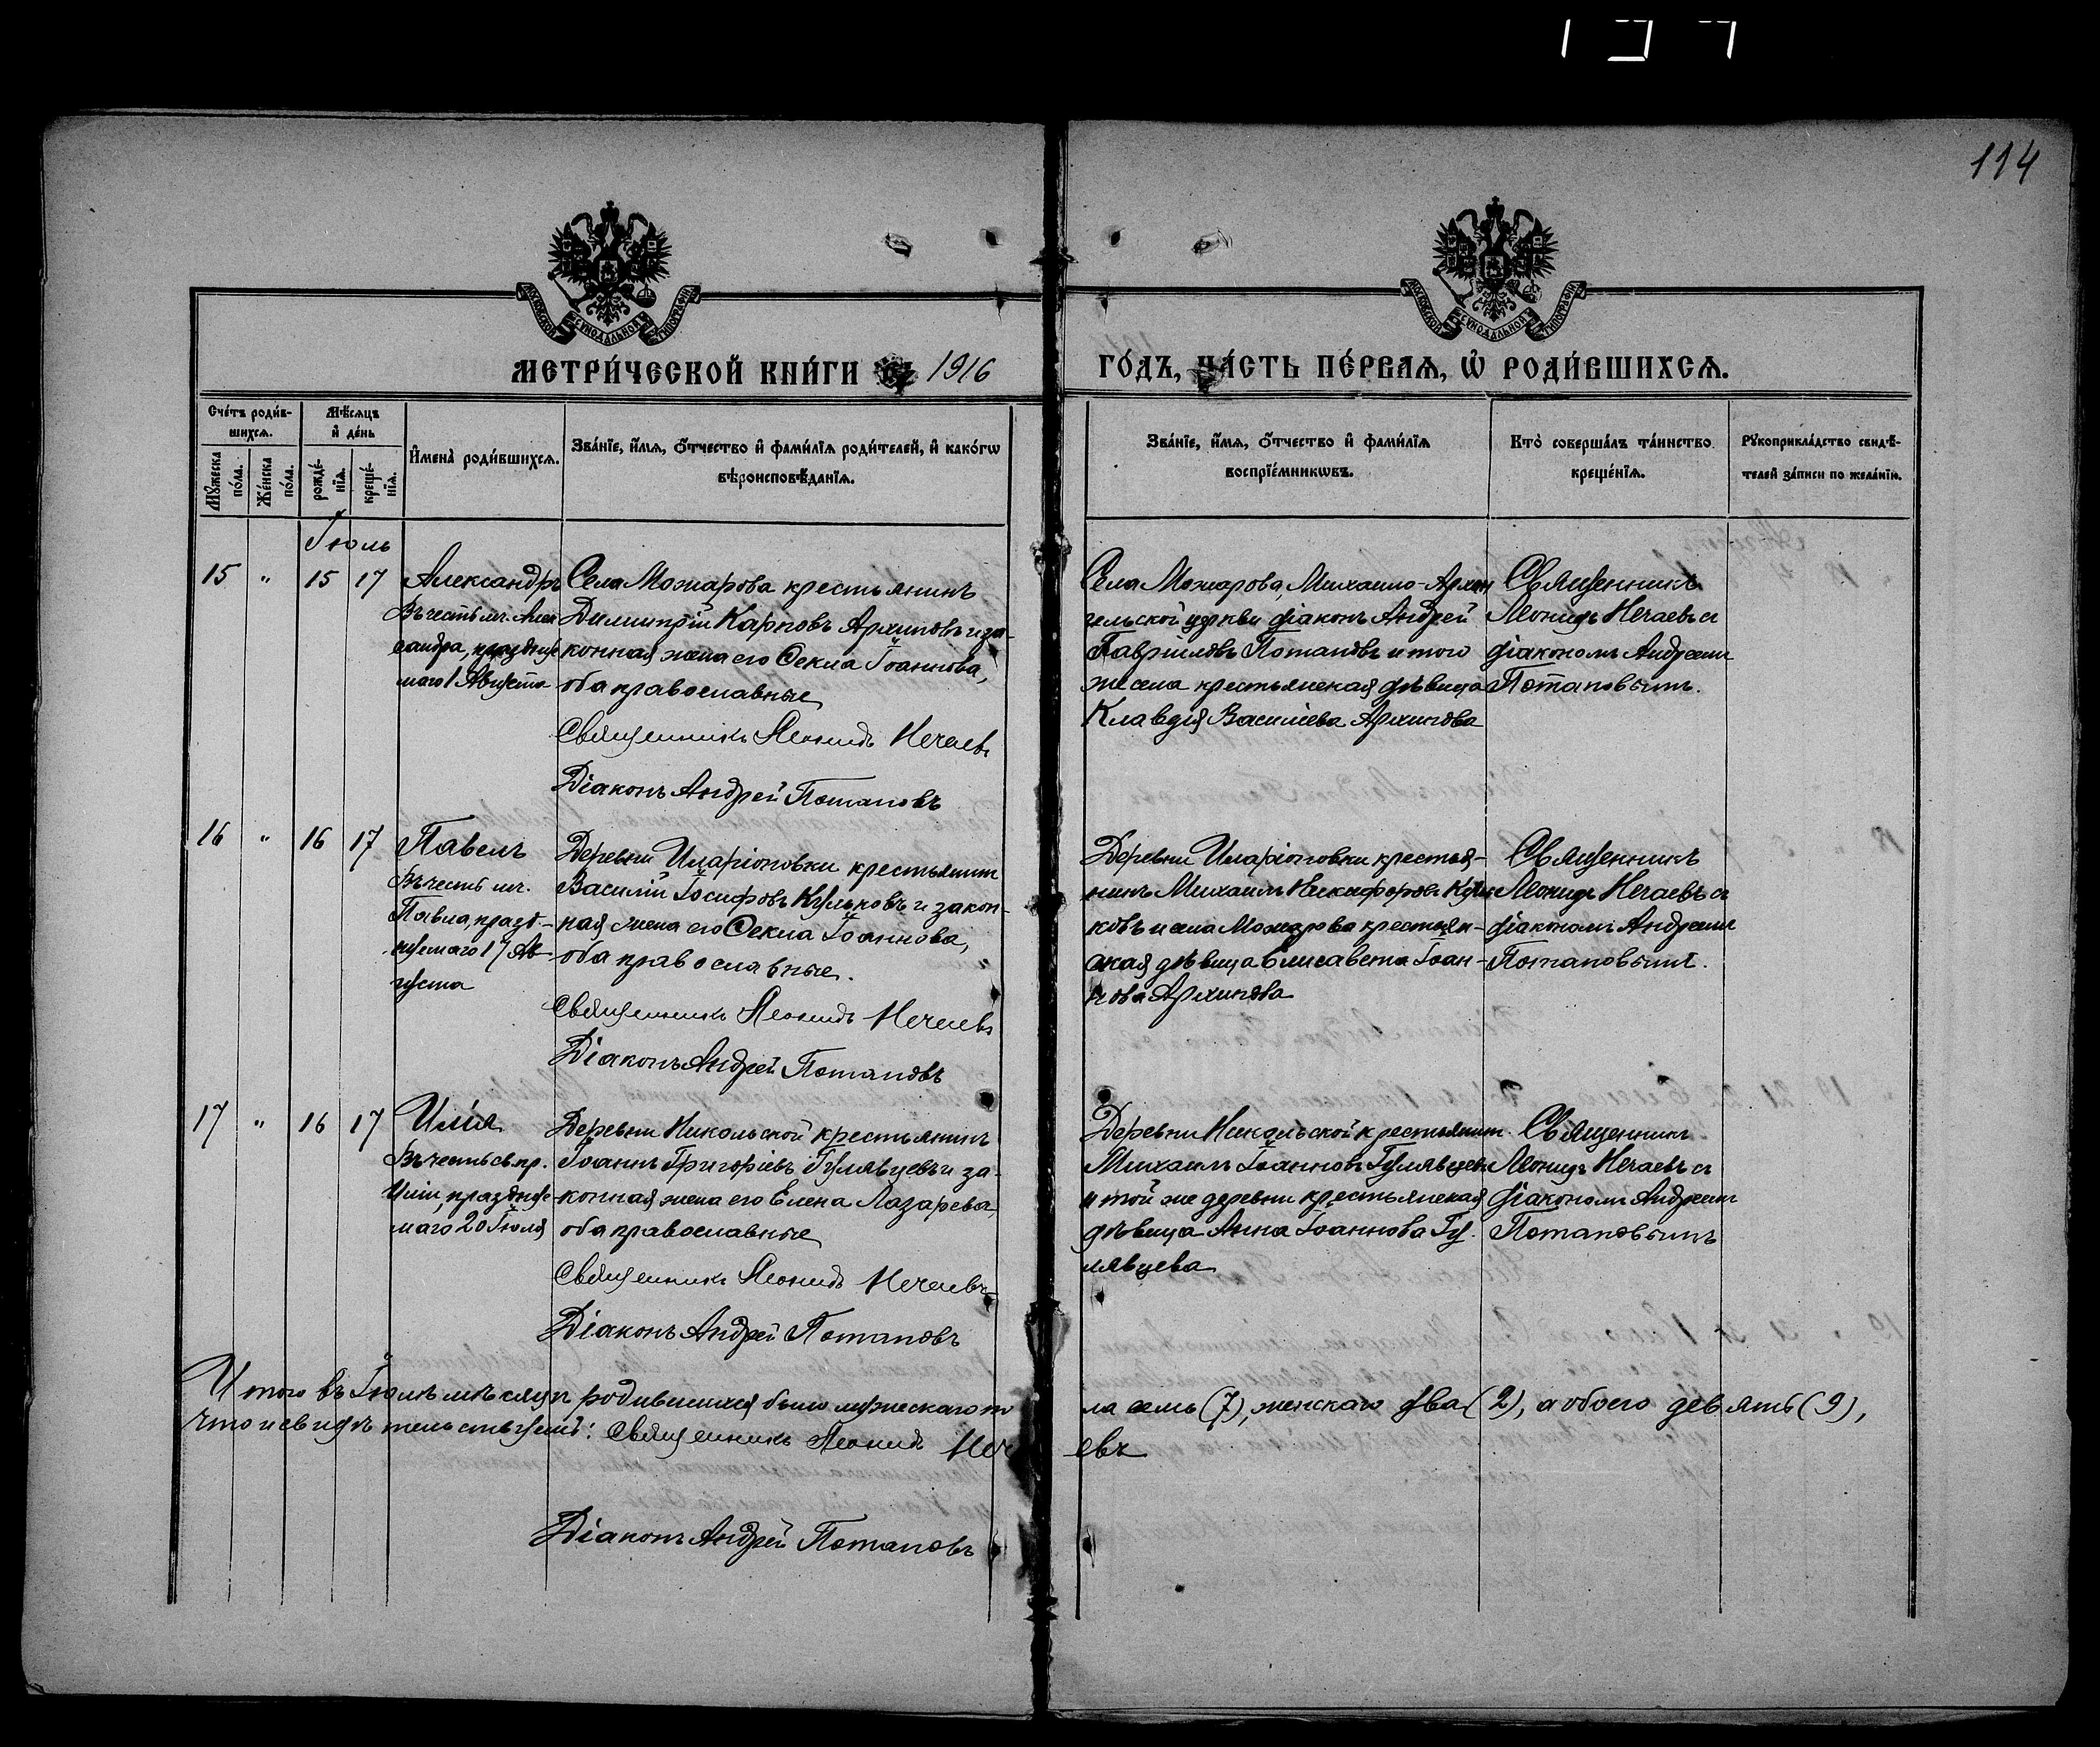 114
МЕТРИ́ЧЕСКОЙ КНИ́ГИ НА 1916
ГО́ДЪ, ЧА́СТЬ ПЕ́РВАЯ, Ѽ РОДИ́ВШИХСѦ.
Сче́тъ роди́в-
шихсѧ.
Мꙋ́жеска
по́ла.
Же́нска
по́ла.
Мѣ́сѧцъ
и҆ де́нь
рожде́-
нїѧ.
креще́-
нїѧ.
И҆мена̀ роди́вшихсѧ.
Зва́нїе, и҆́мѧ, ѻ҆́тчество и҆ фами́лїѧ роди́телей, и҆ како́гѡ
вѣроисповѣ́данїѧ.
Зва́нїе, и҆́мѧ, ѻ҆́тчество и҆ фами́лїѧ
воспрїе́мникѡвъ.
Кто̀ соверша́лъ та́инство
креще́нїѧ.
Рꙋкоприкла́дство свидѣ́-
телей за́писи по жела́нїю.
Іюль
15 " 15 17
Александръ
Въ честь мч. Алек
сандра, празднуе
маго 1 Августа
Села Можарова крестьянинъ
Димитрій Карповъ Архиповъ и за-
конная жена его Ѳекла Іоаннова,
оба православные
Священникъ Леонидъ Нечаевъ
Діаконъ Андрей Потаповъ
Села Можарова, Михаило-Архан
гельской церкви діаконъ Андрей
Гавріиловъ Потаповъ и того
же села крестьянская дѣвица
Клавдія Василіева Архипова
Священникъ
Леонидъ Нечаевъ съ
діакономъ Андреемъ
Потаповымъ.
16 " 16 17
Павелъ
Въ честь мч.
Павла, празд-
нуемаго 17 Ав-
густа
Деревни Иларіоновки крестьянинъ
Василій Іосифовъ Кульковъ и закон-
ная жена его Ѳекла Іоаннова,
оба православные.
Священникъ Леонидъ Нечаевъ
Діаконъ Андрей Потаповъ
Деревни Иларіоновки крестья-
нинъ Михаилъ Никифоровъ Куль
ковъ и села Можарова крестьян-
ская дѣвица Елисавета Іоан-
нова Архипова
Священникъ
Леонидъ Нечаевъ съ
діакономъ Андреемъ
Потаповымъ.
17 " 16 17
Илія
Въ честь св. пр.
Иліи, празднуе-
маго 20 Іюля
Деревни Никольской крестьянинъ
Іоаннъ Григоріевъ Гулявцевъ и за-
конная жена его Елена Лазарева,
оба православные
Священникъ Леонидъ Нечаевъ
Діаконъ Андрей Потаповъ
Деревни Никольской крестьянинъ
Михаилъ Іоанновъ Гулявцевъ
и той же деревни крестьянская
дѣвица Анна Іоаннова Гу-
лявцева
Священникъ
Леонидъ Нечаевъ съ
діакономъ Андреемъ
Потаповымъ
Итого въ Іюлѣ мѣсяцѣ родившихся было мужескаго по
ла семь (7), женскаго два (2), а обоего девять (9),
что и свидѣтельствуемъ: Священникъ Леонидъ Неча
евъ
Діаконъ Андрей Потаповъ